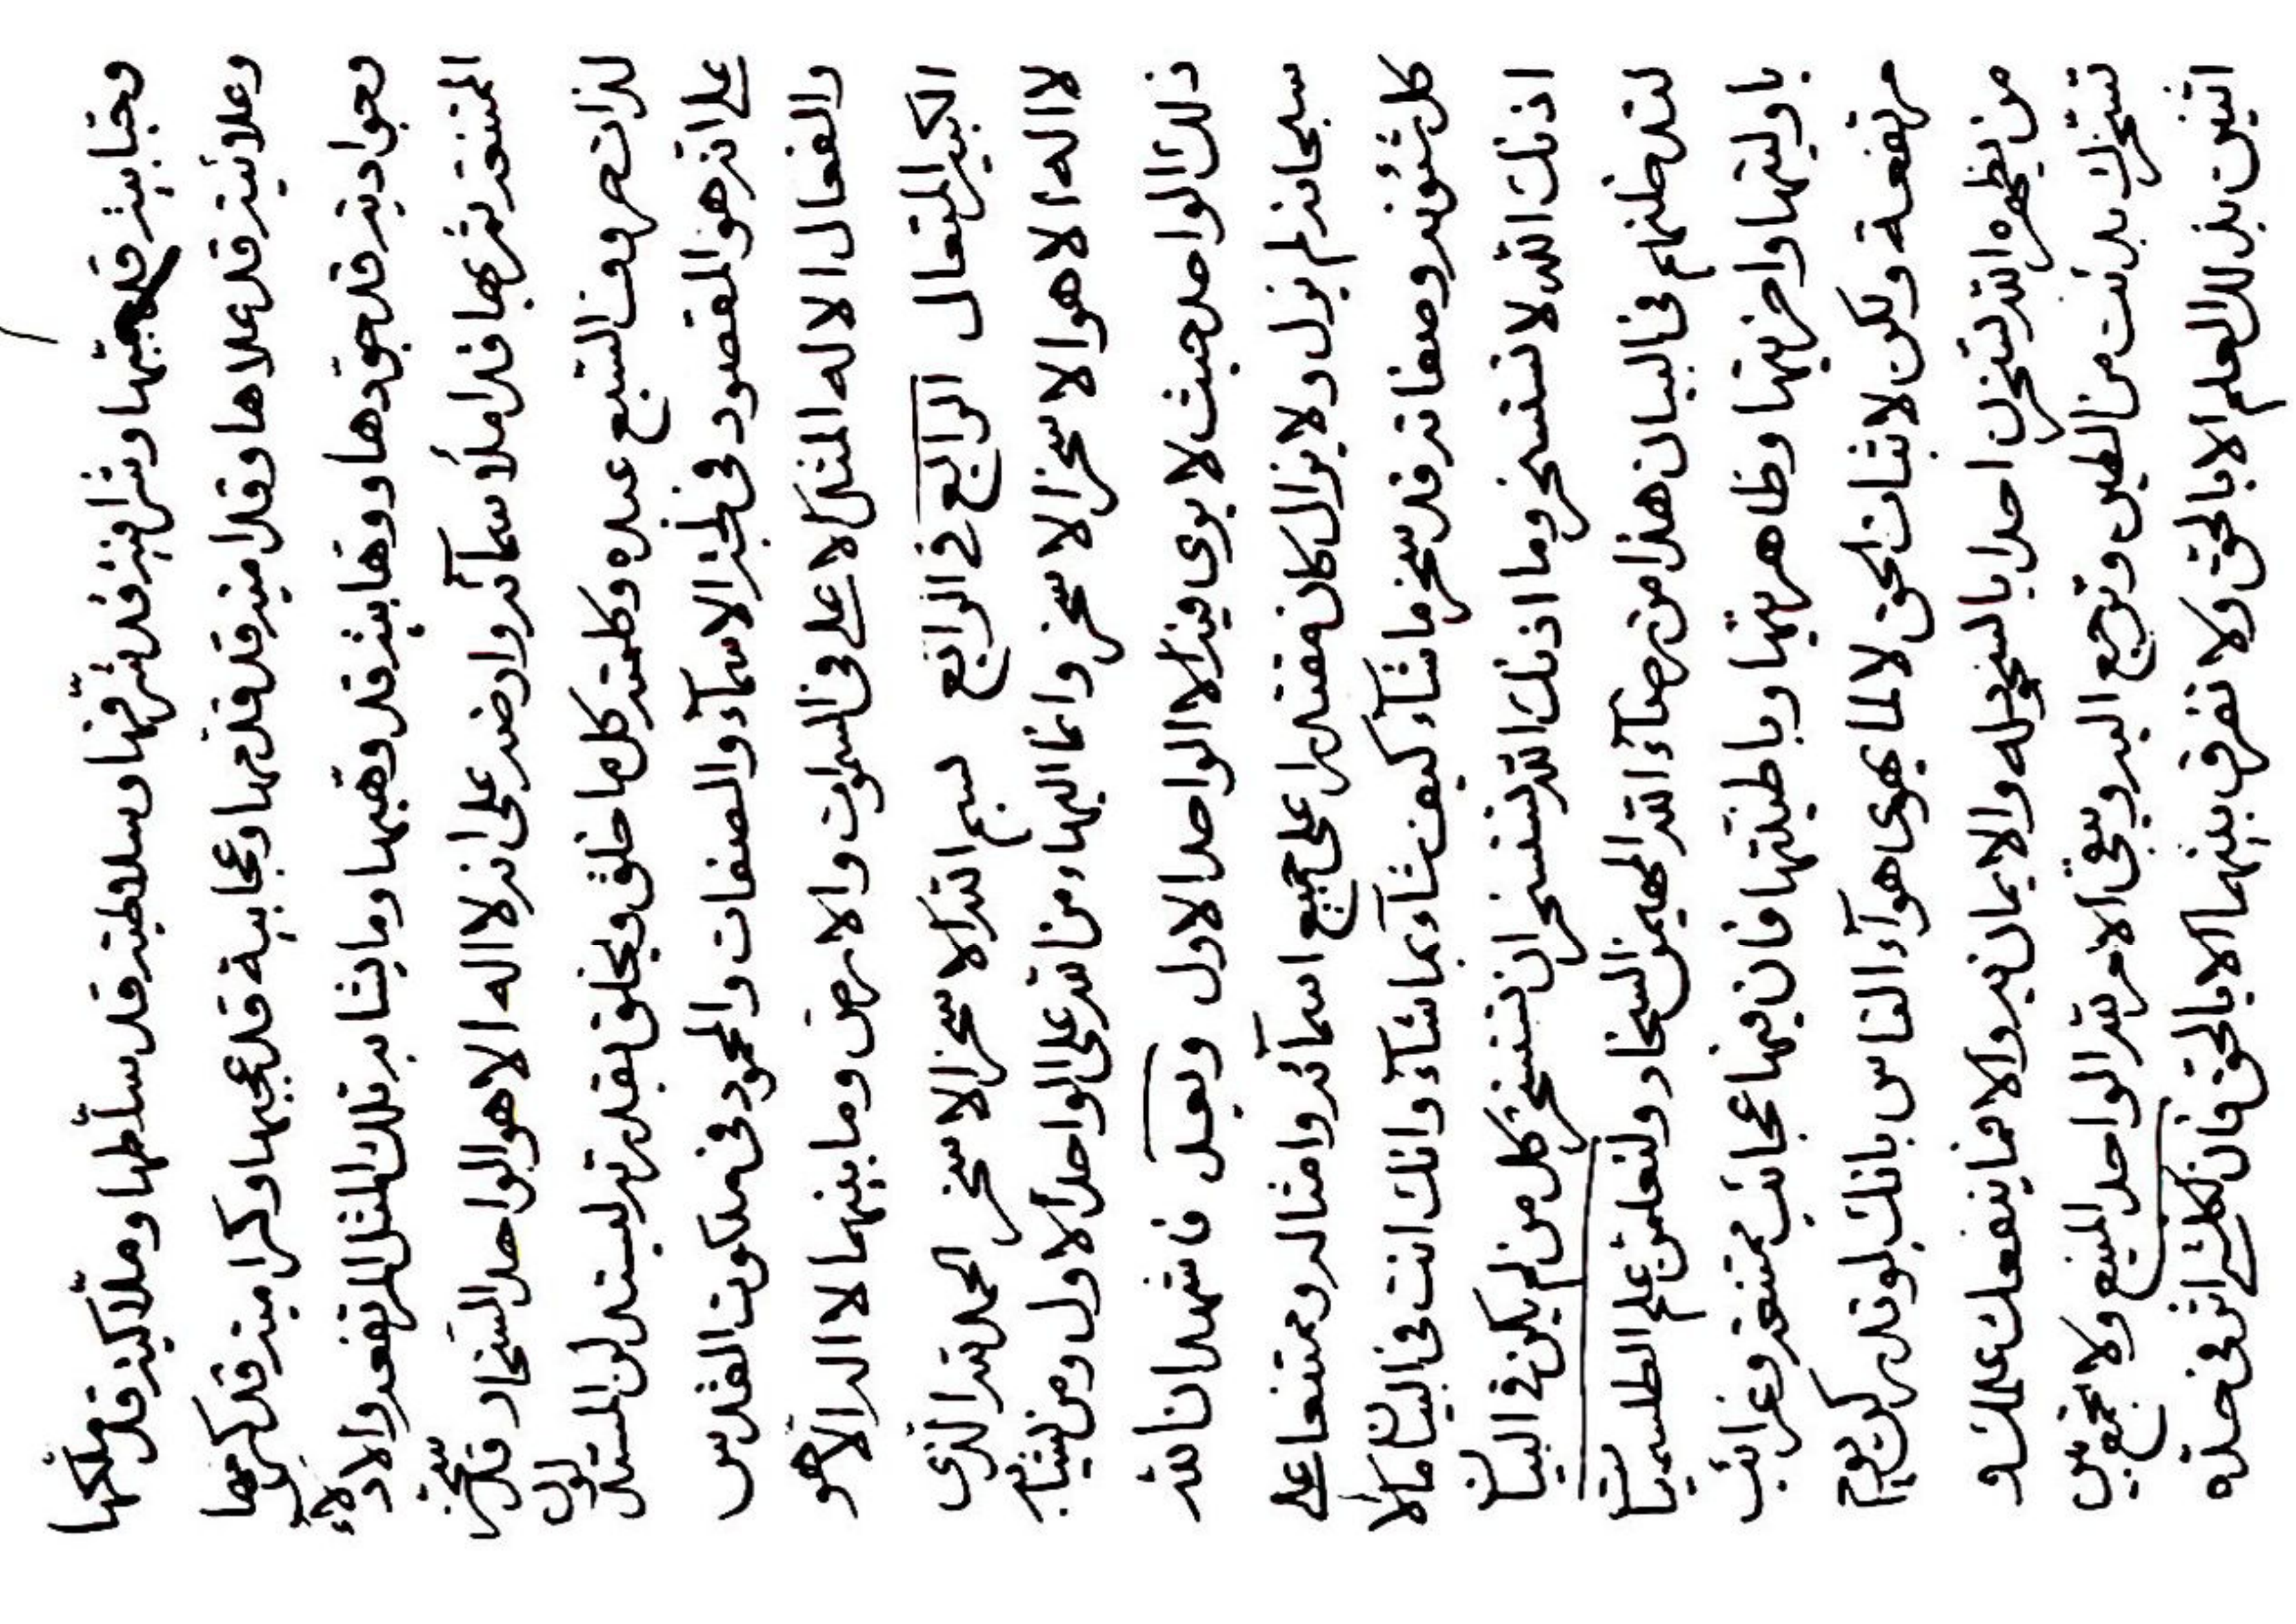 وحبابيته قد حببها وشرافيته قد شرّفها وسلاطيته قد سلّطها وملاكيته قد ملّكها
وعلائيته قد علاها وقداميته قد قدّمها وعجابية قد عجبها وكراميته قد كرمها
وجواديته قد جوّدها ووهابيته قد وهّبها وما يشابه تلك المثل المرتفعه والادلاء
الممتنعه قد املأ سمآئه وارضه على انه لا اله الا هو الواحد السخار قد سخر
لذات حروف السبع عبده وكلمته كل ما خلق ويخلق بقدرته ليستدلن المستدلون
على انه هو المقصود فى الاسمآء والصفات والمحمود فى ملكوت القدس
والفعال الا له المثل الاعلى فى السموات والارض وما بينهما لا اله الا هو
الكبير المتعال الرابع فى الرابع بسم الله الاسخر الاسخر الحمد لله الذى
لا اله الا هو الاسخر الاسخر وانما البهاء من الله على الواحد الاول ومن يشابه
ذلك الواحد حيث لا يرى فيه الا الواحد الاول وبعد فاشهد ان الله
سبحانه لم يزل ولا يزال كان مقتدرا على جميع اسمآئه وامثاله وممتنعا على
كل شئونه وصفاته قد سخر ما شآء كيف شآء بما شآء وانك انت فى البيان ما لا
اذنك الله لا تستسخر وما اذنك الله تستسخر ان تستسخر كل من لم يكن فى البيان
لتدخلنهم فى البيان هذا من رضآء الله المهيمن السخار ولتعلمن علم الطلسميات
باوليتها واخريتها وظاهريتها وباطنيتها فان فيها عجائب ممتنعه وغرائب
مرتفعة ولكن لاثبات الحق لا لما يهوى هوآء الناس بانك لو تدركن يوم
من يظهره الله لتسخرن احدا بالسجود له والايمان به والا فما ينفعك علمك و
تتحرك بدئت من الطين وترجع اليه ويبقى الامر لله الواحد المنيع ولا تجمع بين
اثنين بذلك العلم الا بالحق ولا تفرق بينهما الا بالحق فان لكل شئ اثر فى حده